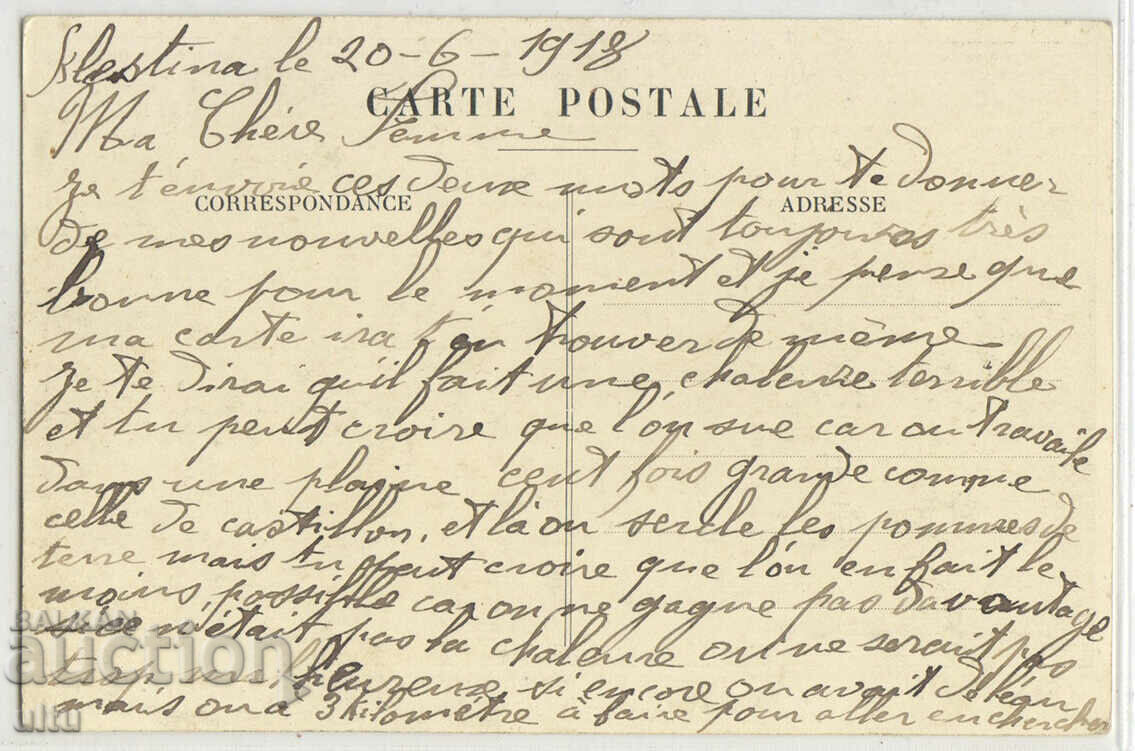 Klestina le 20-6-1918
CARTE POSTALE
Ma Chére Femme
je t'envoie ces deux mots pour te donner
CORRESPONDANCE
ADRESSE
de mes nouvelles qui sont toujours très
bonne pour le moment et je pense que
ma carte ira t'en trouver de même
je te dirai qu'il fait une chaleure terrible
et tu peut croire que l'on sue car on travaile
dans une plaine cent fois grande comme
celle de castillon, et là on sercle les pommes de
terre mais tu peut croire que l'on en fait le
moins possible car on ne gagne pas davantage
si ce n'était pas la chaleure on ne serait pas
trop malheureuse si encore on avait de l'eau
mais on a 3 kilomètre à faire pour aller en chercher
BALKAN
auction
ultu